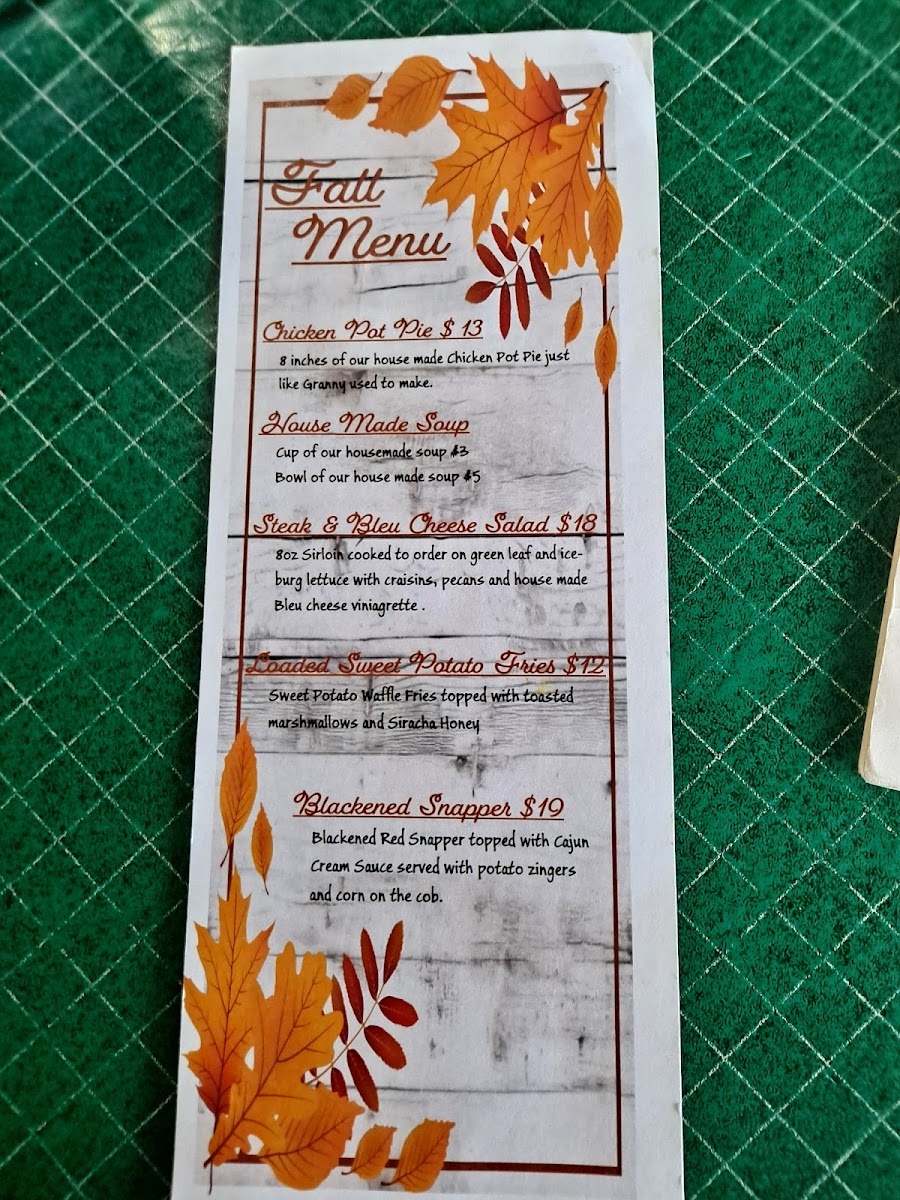 Fall
Menu
Chicken Pot Pie $ 13
8 inches of our house made Chicken Pot Pie just
like Granny used to make.
House Made Soup
Cup of our housemade soup $3
Bowl of our house made soup $5
Steak & Bleu Cheese Salad $18
8oz Sirloin cooked to order on green leaf and ice-
burg lettuce with craisins, pecans and house made
Bleu cheese viniagrette .
Loaded Sweet Potato Fries $12
Sweet Potato Waffle Fries topped with toasted
marshmallows and Siracha Honey
Blackened Snapper $19
Blackened Red Snapper topped with Cajun
Cream Sauce served with potato zingers
and corn on the cob.